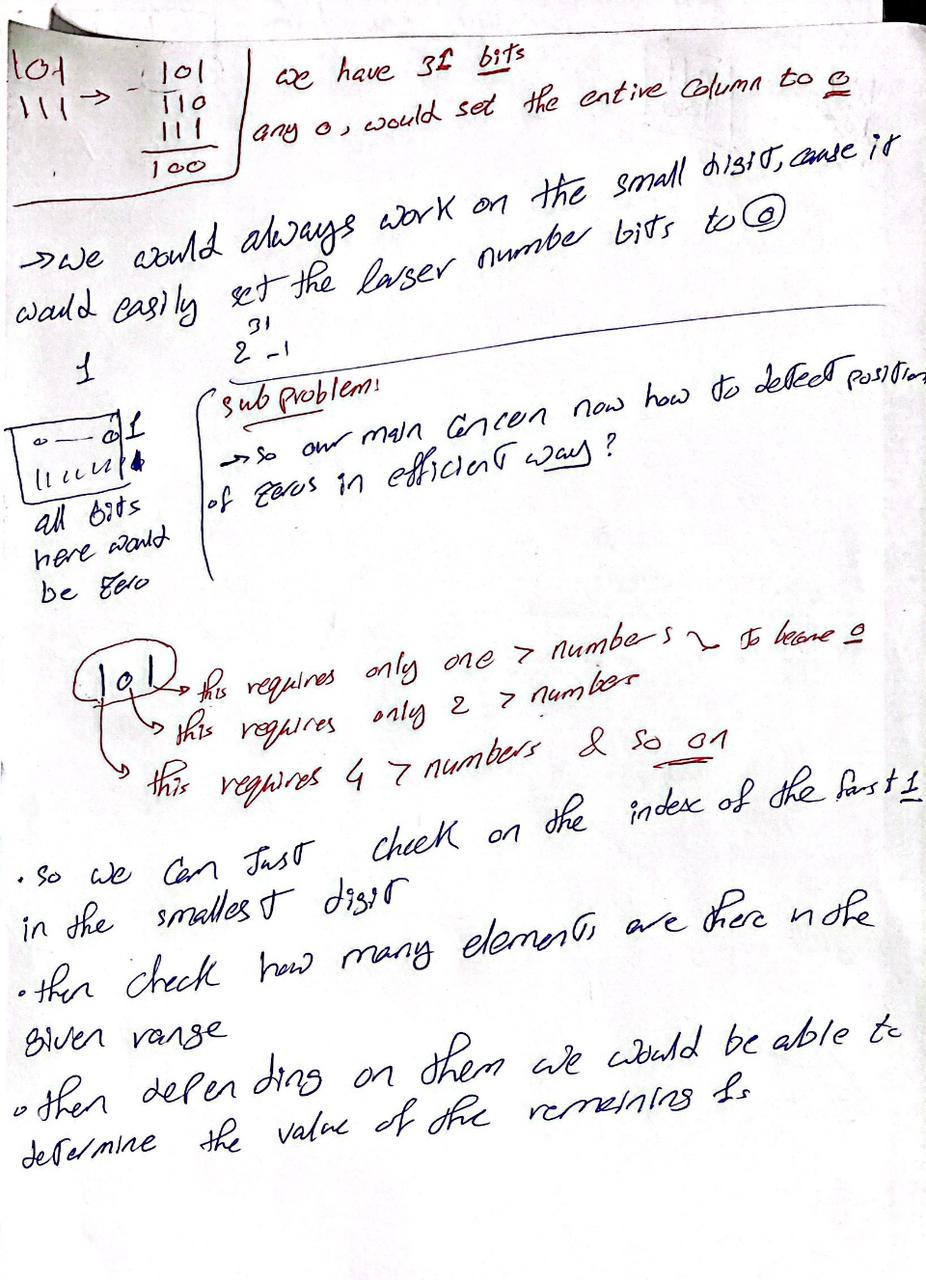 101
111 → 101
110
111
100
we have 31 bits
any 0, would set the entire column to 0
→ we would always work on the small digit, cause it
would easily set the larger number bits to 0
2^31 -1
1
0 — 0 1
all bits
here would
be zero
sub problem:
→ so our main concern now how to detect position
of zeros in efficient way?
101 → this requires only one > numbers to become 0
→ this requires only 2 > numbers
→ this requires 4 > numbers & so on
. so we can Just check on the index of the first 1
in the smallest digit
. then check how many elements are there in the
given range
. then depending on them we would be able to
determine the value of the remaining 1s